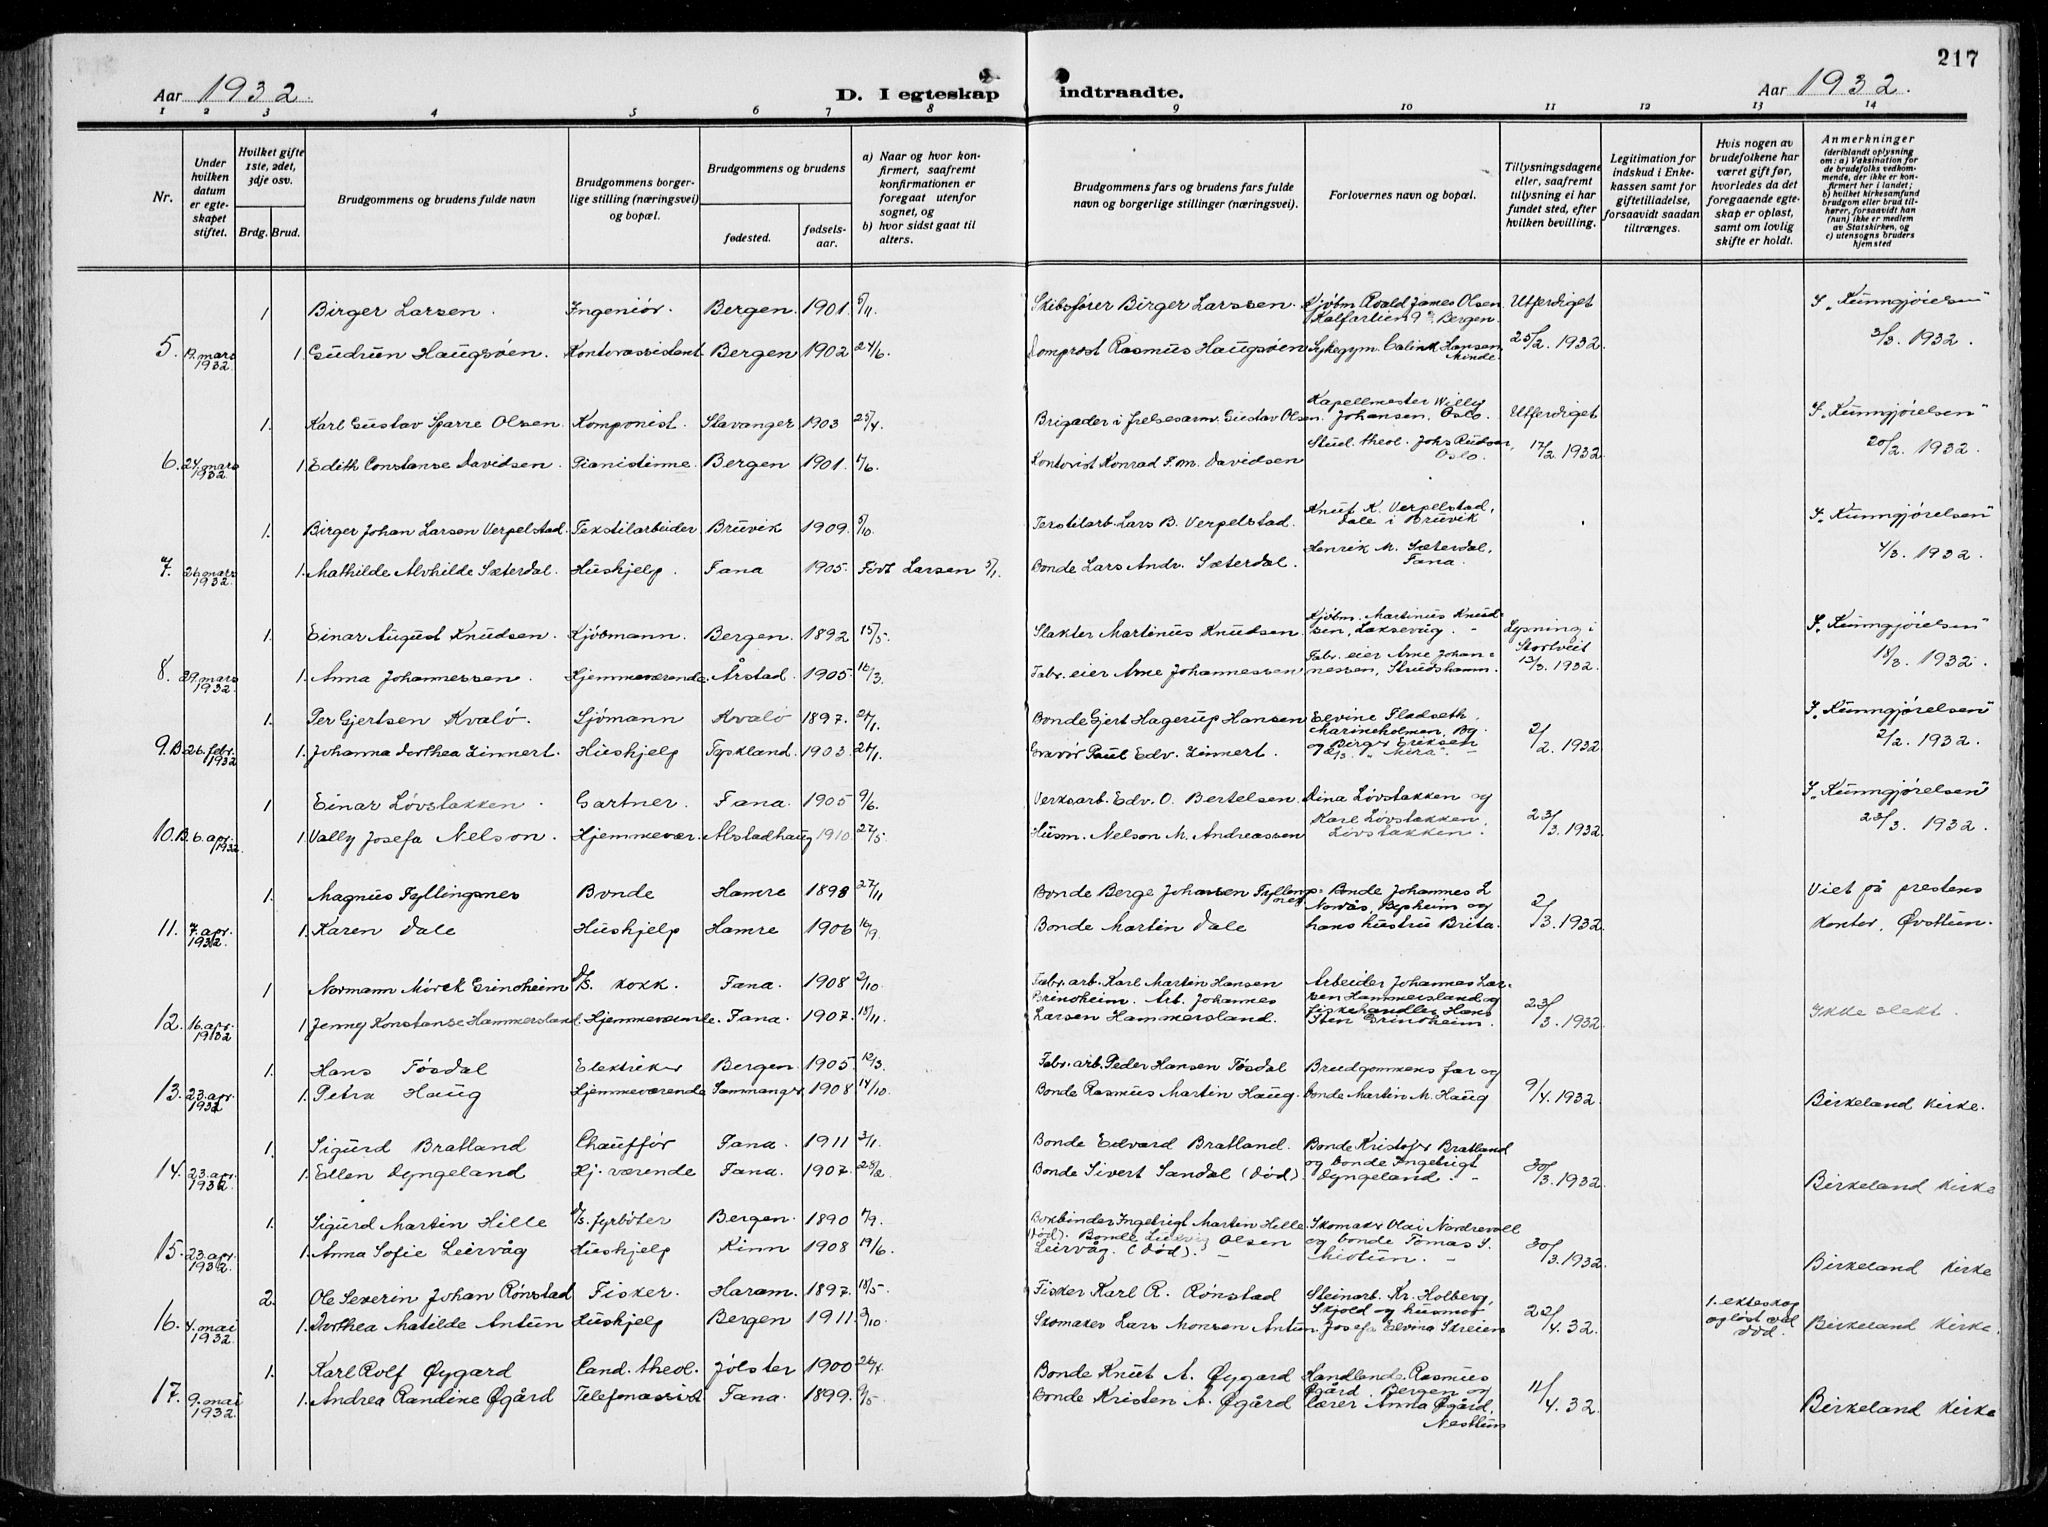 217
Aar 1932.
D. I egteskap indtraadte.
Aar 1932.
1 2 3 4 5 6 7 8 9 10 11 12 13 14
Nr.
Under hvilken datum er egteskapet stiftet.
Hvilket gifte 1ste, 2det, 3dje osv.
Brdg. Brud.
Brudgommens og brudens fulde navn
Brudgommens borgerlige stilling (næringsvei) og bopæl.
Brudgommens og brudens
fødested.
fødselsaar.
a) Naar og hvor konfirmert, saafremt konfirmationen er foregaat utenfor sognet, og
b) hvor sidst gaat til alters.
Brudgommens fars og brudens fars fulde navn og borgerlige stillinger (næringsvei).
Forlovernes navn og bopæl.
Tillysningsdagene eller, saafremt tillysning ei har fundet sted, efter hvilken bevilling.
Legitimation for indskud i Enkekassen samt for giftetilladelse, forsaavidt saadan tiltrænges.
Hvis nogen av brudefolkene har været gift før, hvorledes da det foregaaende egteskap er opløst, samt om lovlig skifte er holdt.
Anmerkninger
(deriblandt oplysning om: a) Vaksination for de brudefolks vedkommende, der ikke er konfirmert her i landet;
b) hvilket kirkesamfund brudgom eller brud tilhører, forsaavidt han (hun) ikke er medlem av Statskirken, og
c) utensogns bruders hjemsted
1 Birger Larsen. Ingeniør. Bergen. 1901. 5/11. Skibsfører Birger Larssen. Kjøbm. Roald James Olsen Kalfarlien 9 Bergen. Utferdiget I „Kunngjørelsen"
5. 19. mars 1932. 1. Gudrun Haugsøen. Kontorassistent. Bergen 1902 24/6. Domprost Rasmus Haugsøen Sykegym. Hansen, Minde 25/2. 1932. 3/3. 1932.
1. Karl Gustav Sparre Olsen. Komponist. Stavanger 1903 25/4. Brigader i frelsesarm. Gustav Olsen. Kapellmester Willy Johansen, Oslo. Utferdiget I „Kunngjørelsen"
6. 24. mars 1932. 1. Edith Constanse Davidsen. Pianistinne. Bergen 1901. Kontorist Konrad F. M. Davidsen Stud. theol. Johs Oslo. 17/2. 1932. 20/2. 1932.
1. Birger Johan Larsen Verpelstad. Tekstilarbeider Bruvik 1909. 5/10. Lars B. Verpelstad. Knut K. Verpelstad, Dale i Bruvik I „Kunngjørelsen"
7. 26. mars 1932. 1. Mathilde Alvhilde Sæterdal. Hushjelp. Fana 1905. Født Larsen 5/1. Bonde Lars Andr. Sæterdal. Henrik M. Sæterdal, Fana. 4/3. 1932.
1. Einar August Knudsen. Kjøbmann. Bergen. 1892 15/5. Slakter Martinus Knudsen. Kjøbm. Martinus Knudsen, Laksevåg. Lysning i Stortveit I „Kunngjørelsen"
8. 29. mars 1932. 1. Anna Johannessen. Hjemmeværende. Årstad. 1905. 16/3. Fabr. eier Arne Johannessen Fabr. eier Arne Johannessen, Strudshamn. 13/3. 1932. 18/3. 1932.
1. Per Gjertsen Kvalø. Sjømann Kvalø 1897. 24/1. Bonde Gjert Hagerup Hansen Elvine Fladseth, Marineholmen, Bg. I „Kunngjørelsen"
9.B 26. febr. 1932 1. Johanna Dorthea Linnert. Hushjelp Tyskland. 1903. 24/1. Gravør Paul Edv. Linnert. og Birger Eriksen d/s. „Mira". 2/2. 1932. 2/2. 1932.
1 Einar Løvstakken. Gartner. Fana. 1905 9/6. Verksarb. Edv. O. Bertelsen. Dina Løvstakken og I „Kunngjørelsen"
10.B. 6. apr. 1932. 1. Vally Josefa Nelson. Hjemmevær. Alstadhaug 1910. 27/5. Husm. Nelson M. Andreassen Karl Løvstakken, Løvstakken. 23/3. 1932. 23/3. 1932.
1. Magnus Fyllingsnes Bonde Hamre 1898 27/11 Bonde Berge Johansen Fyllingsnes. Bonde Johannes L Viet på prestens
11. 7. apr. 1932. 1. Karen Dale Hushjelp Hamre 1906 16/9. Bonde Martin Dale Norås, og hans hustru Brita. 2/3. 1932. kontor, Øvsttun.
1 Normann Mørck Grindheim D/S. kokk. Fana. 1908 2/10. Fabr. arb. Karl Martin Hansen Grindheim. Arbeider Johannes Larsen Hammersland og
12. 16. apr. 1932 1 Jenny Konstanse Hammersland Hjemmeværende. Fana. 1907. 18/11. Arb. Johannes Larsen Hammersland. fiskehandler Hans Sten Grindheim. 23/3. 1932. Ikke slekt.
1. Hans Tøsdal Elektriker Bergen 1905. 12/3. Fabr. arb. Peder Hansen Tøsdal Brudgommens far og
13. 23. apr. 1932 1. Petra Haug Hjemmeværende Samnanger 1908 14/10. Bonde Rasmus Martin Haug. bonde Martin M. Haug 9/4. 1932. Birkeland kirke.
1. Sigurd Bratland Chauffør Fana. 1911 3/1. Bonde Edvard Bratland. Bonde Kristofer Bratland
14. 23. apr. 1932 1. Ellen Dyngeland Hj. værende Fana. 1907. 28/2. Bonde Sivert Sandal (død). og bonde Ingebrigt Dyngeland. 30/3. 1932. Birkeland kirke
1. Sigurd Martin Hille D/S. fyrbøter Bergen. 1890 Bokbinder Ingebrigt Martin Hille (død). Skomaker Olai Nordrevoll
15. 23. apr. 1932. 1. Anna Sofie Leirvåg Hushjelp Kinn 1908 19/6. Bonde Ludvig Olsen Leirvåg. (død). og bonde Tomas S. Midtun. 30/3. 1932. Birkeland kirke
2. Ole Severin Johan Rønstad Fisker. Haram. 1897. 18/5. Fisker Karl R. Rønstad Steinarb. Kr. Holberg, 1. ekteskap
16. 4. mai 1932. 1. Dorthea Matilde Antun Hushjelp Bergen 1911. Skomaker Lars Monsen Antun. Skjold og husmor Josefa Elvina Skreien 22/4. 32. opløst ved død. Birkeland kirke.
1. Karl Rolf Øygard Cand. theol. Jølster 1900 26/4. Bonde Knut A. Øygard Handlende Rasmus
17. 9. mai 1932. 1. Andrea Randine Øgård Telefonassist Fana. 1899. Bonde Kristen A. Øgård Øgård, Bergen og lærer Anna Øgård, Nesttun 12/4. 32. Birkeland kirke